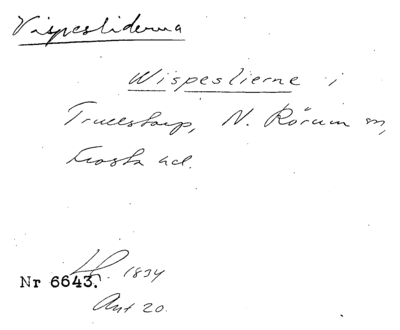 Vispesliderna
Wispeslierne i
Trullstorp, N. Rörum sn,
Frosta hd.
Lh. 1834
Nr 6643.
Ant 20.